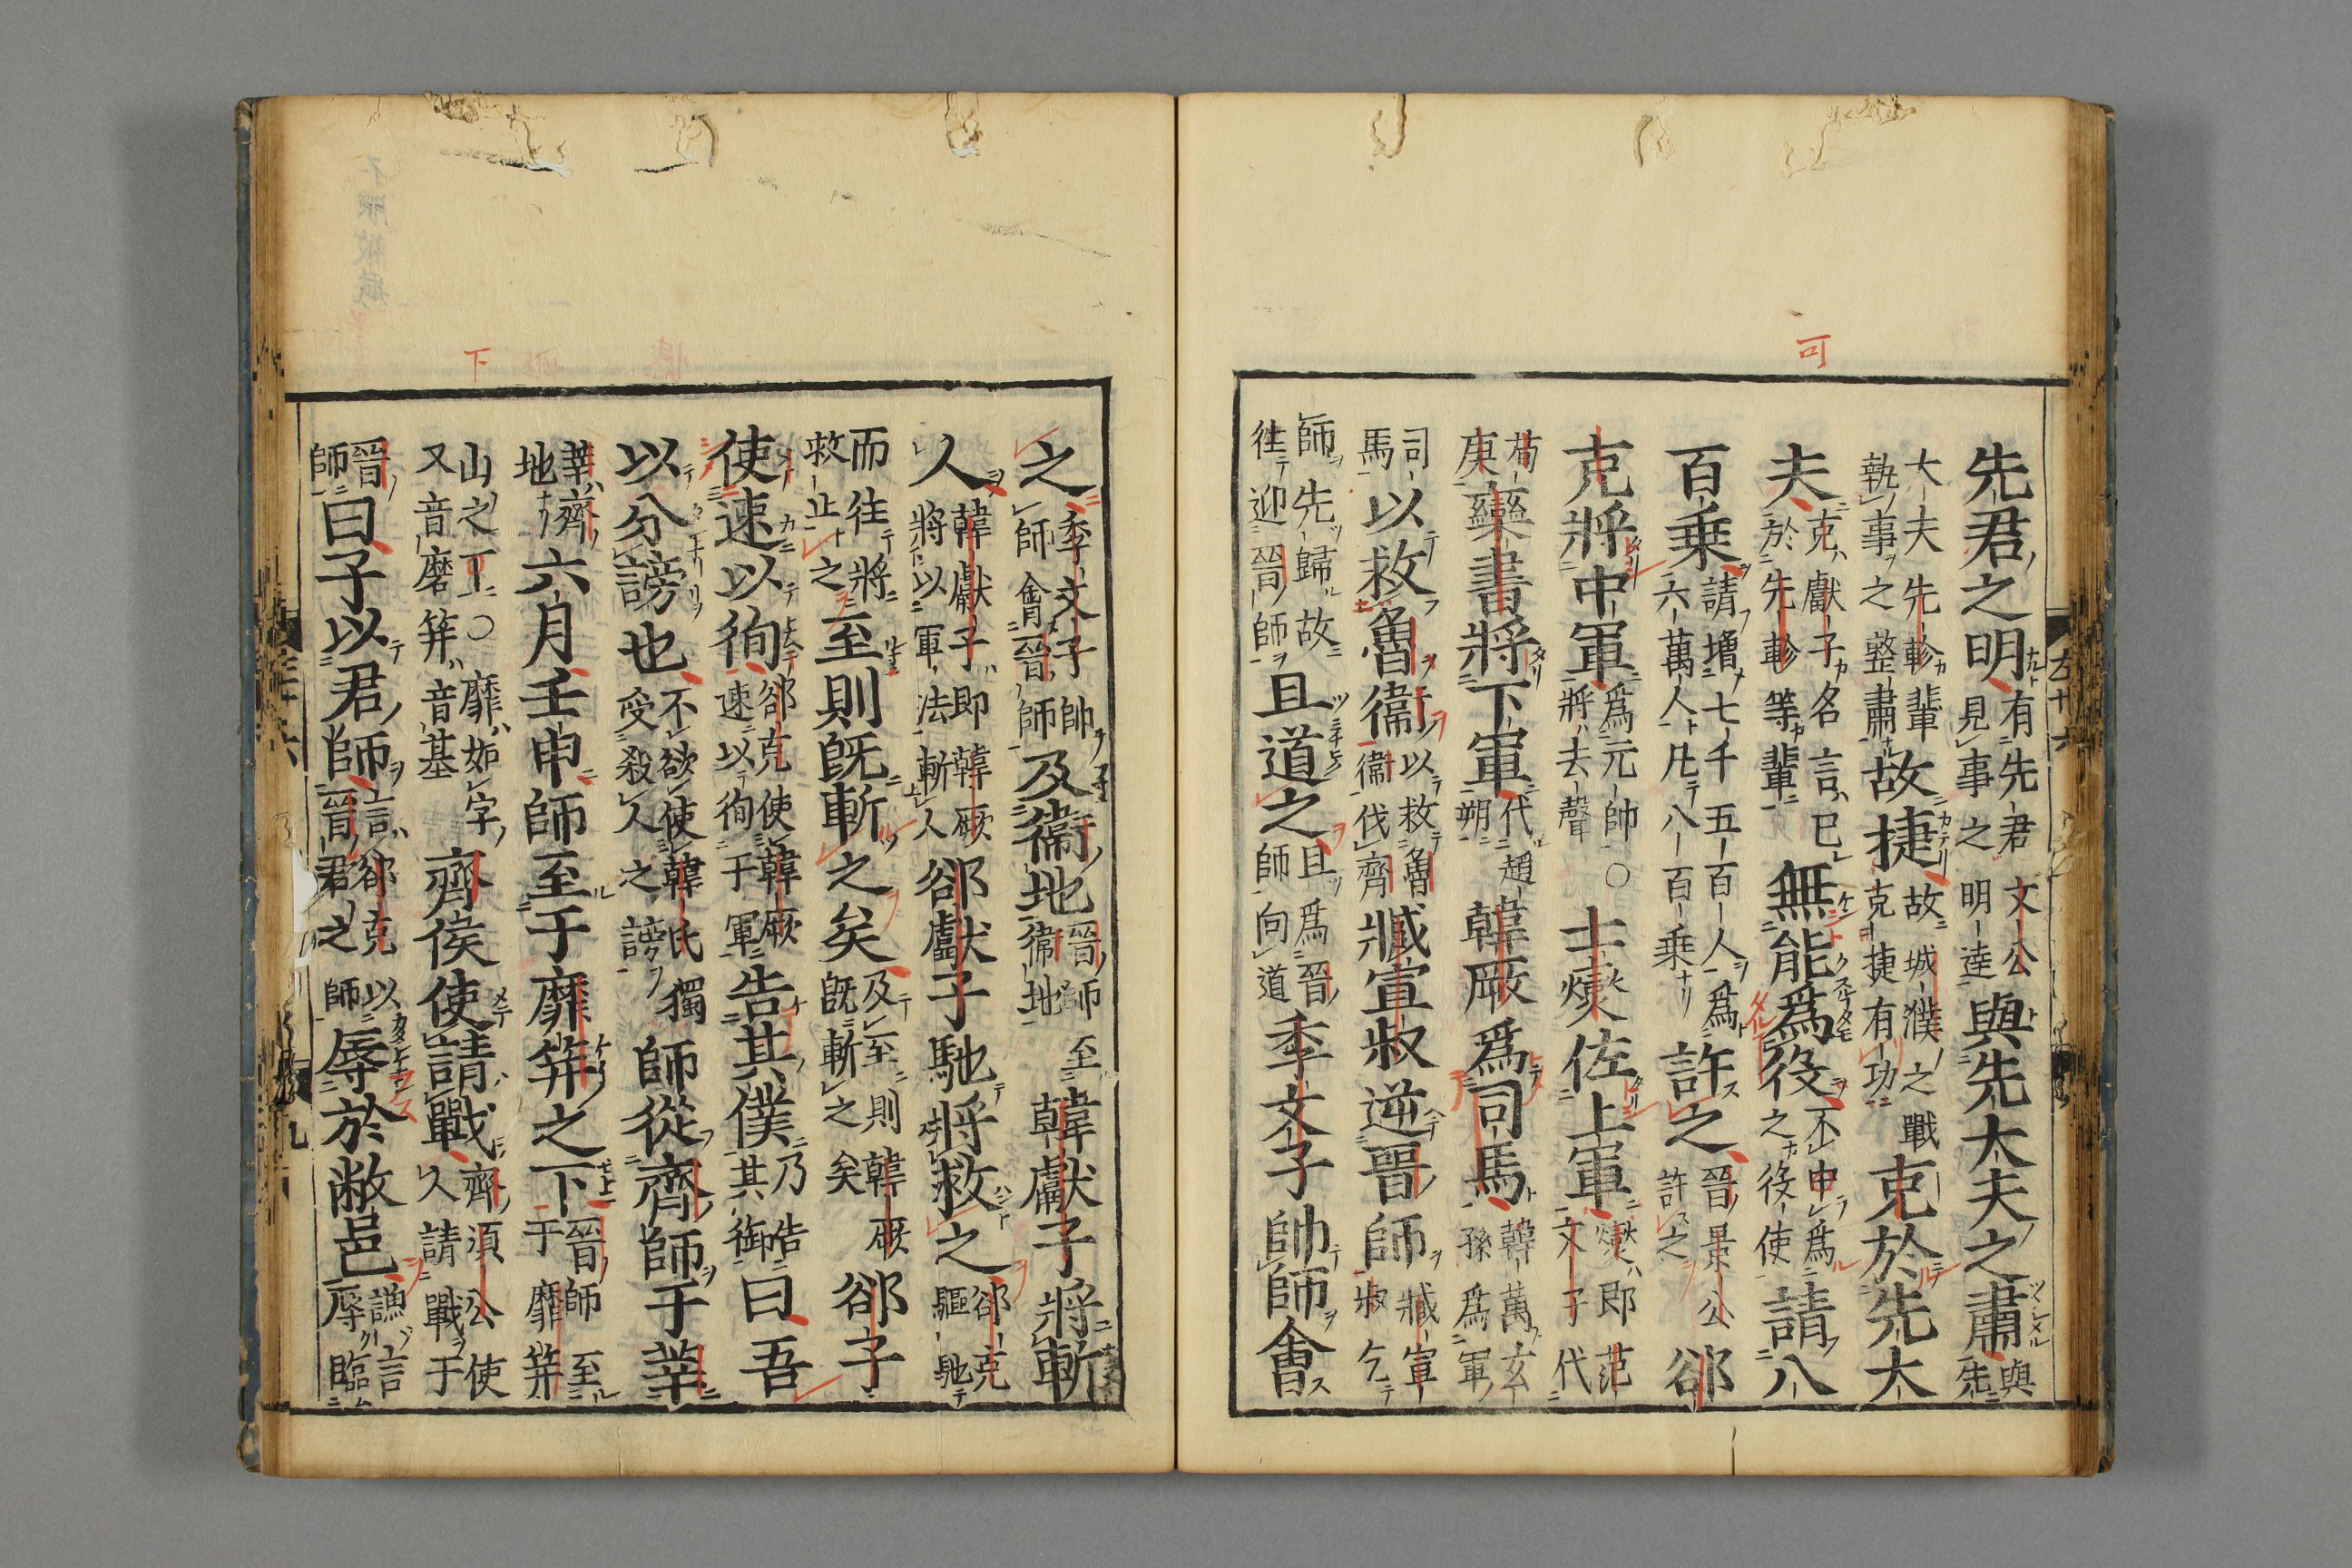 先君之明有先君文公見事之明達與先大夫之肅與先
大夫先軫輩執事之整肅故捷故城濮之戰克捷有功克於先大
夫克獻子名言已於先軫等輩無能爲役不中爲之役使請八
百乘請增七千五百人爲六萬人凡八百乘許之晉景公許之郤
克將中軍爲元帥將去聲○士燮佐上軍燮即范文子代
荀庚欒書將下軍代趙朔韓厥爲司馬韓萬玄孫爲軍
司馬以救魯衞以救魯衞伐齊臧宣叔逆晉師臧宣叔乞
師先歸故往迎晉師且道之且爲晉師向道季文子帥師會
之季文子帥師會晉師及衞地晉師至衞地韓獻子將斬
人韓獻子即韓厥將以軍法斬人郤獻子馳將救之郤克驅馳
而往將救止之至則既斬之矣及至則韓厥既斬之矣郤子
使速以徇郤克使韓厥速以徇于軍告其僕乃告其御曰吾
以分謗也不欲使韓氏獨受殺人之謗師從齊師于莘
莘齊地六月壬申師至于靡筓之下晉師至于靡筓
山之下○靡如字又音磨筓音基齊侯使請戰齊須公使人請戰于
晉師曰子以君師言郤克以晉君之師辱於敝邑謙言辱臨
可
下